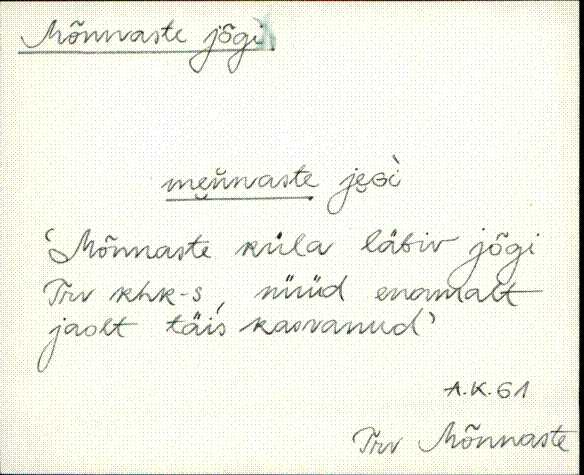 Mõnnaste jõgi
me̮ǹnaste je̮ɢì
‘Mõnnaste küla läbiv jõgi
Trv khk-s, nüüd enamalt
jaolt täis kasvanud’
A.K. 61
Trv Mõnnaste